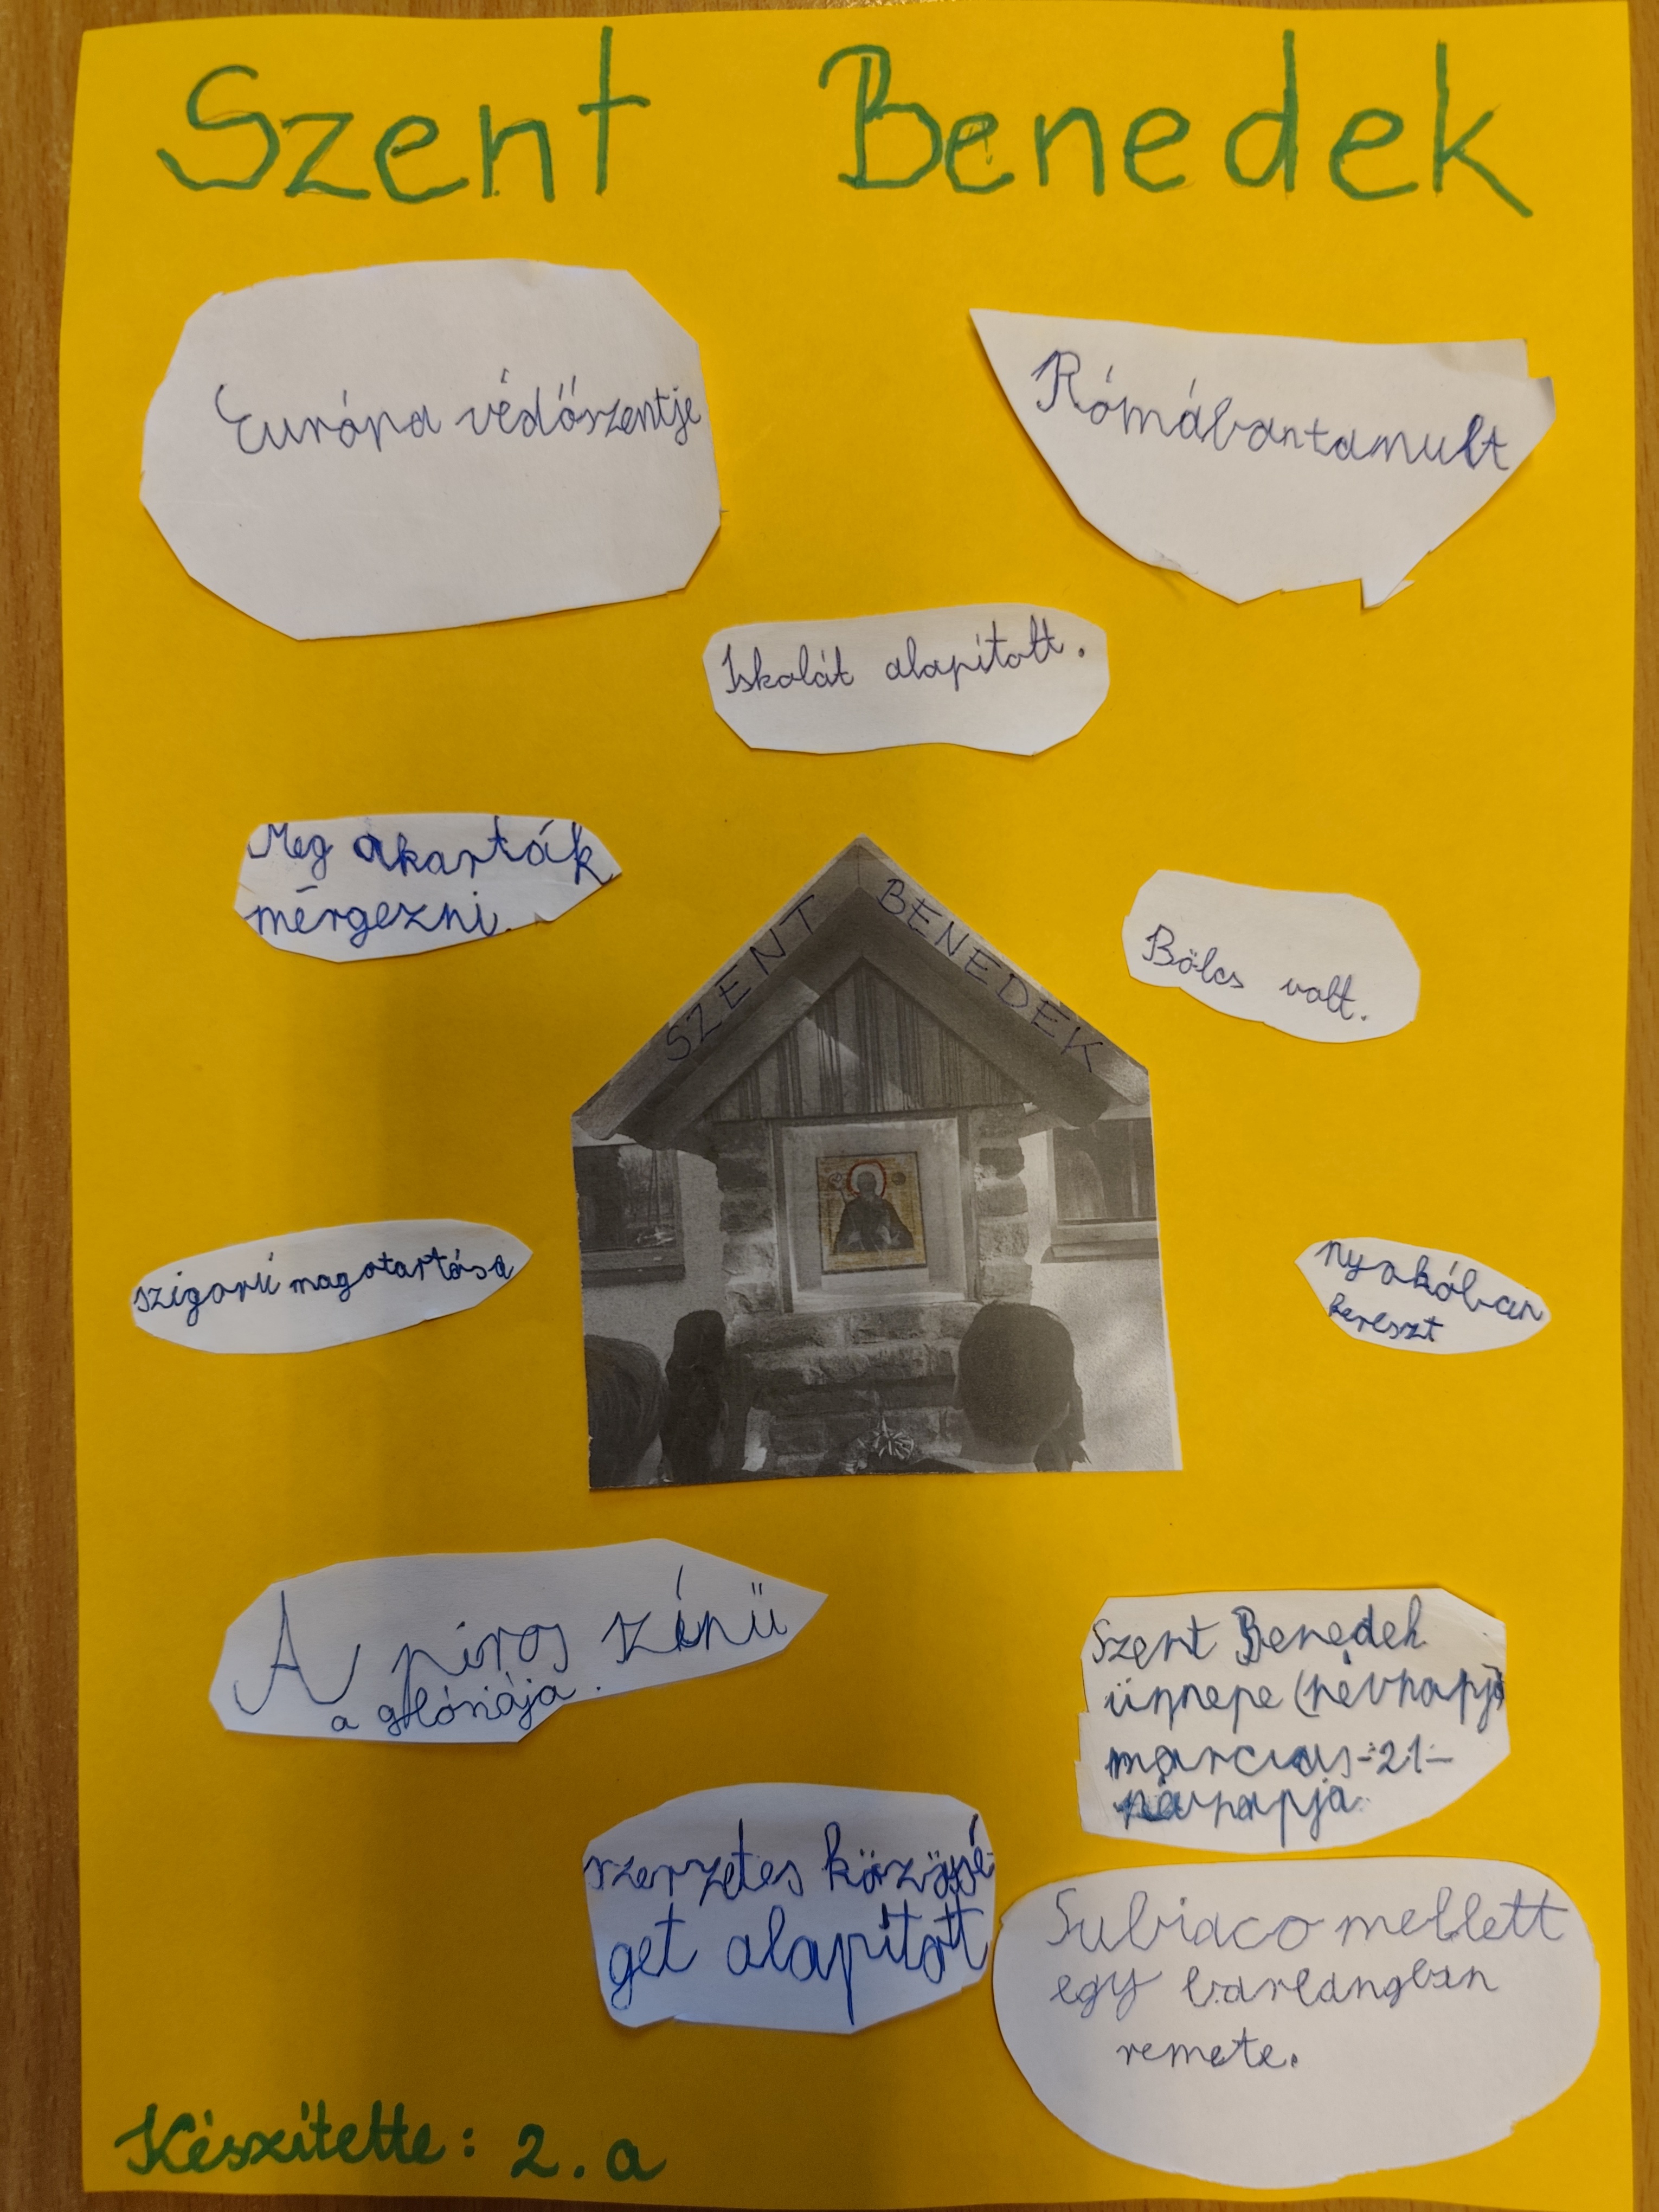 Szent Benedek
Európa védőszentje
Rómábantanult
Iskolát alapított.
Meg akarták
mérgezni.
Bölcs volt.
SZENT BENEDEK
szigorú magatartása
nyakában
kereszt
A piros színü
a glóriája.
Szent Benedek
ünnepe (névnapja)
március-21-
névnapja.
szerzetes közössé-
get alapított
Subiaco mellett
egy barlangban
remete.
Készítette: 2. a